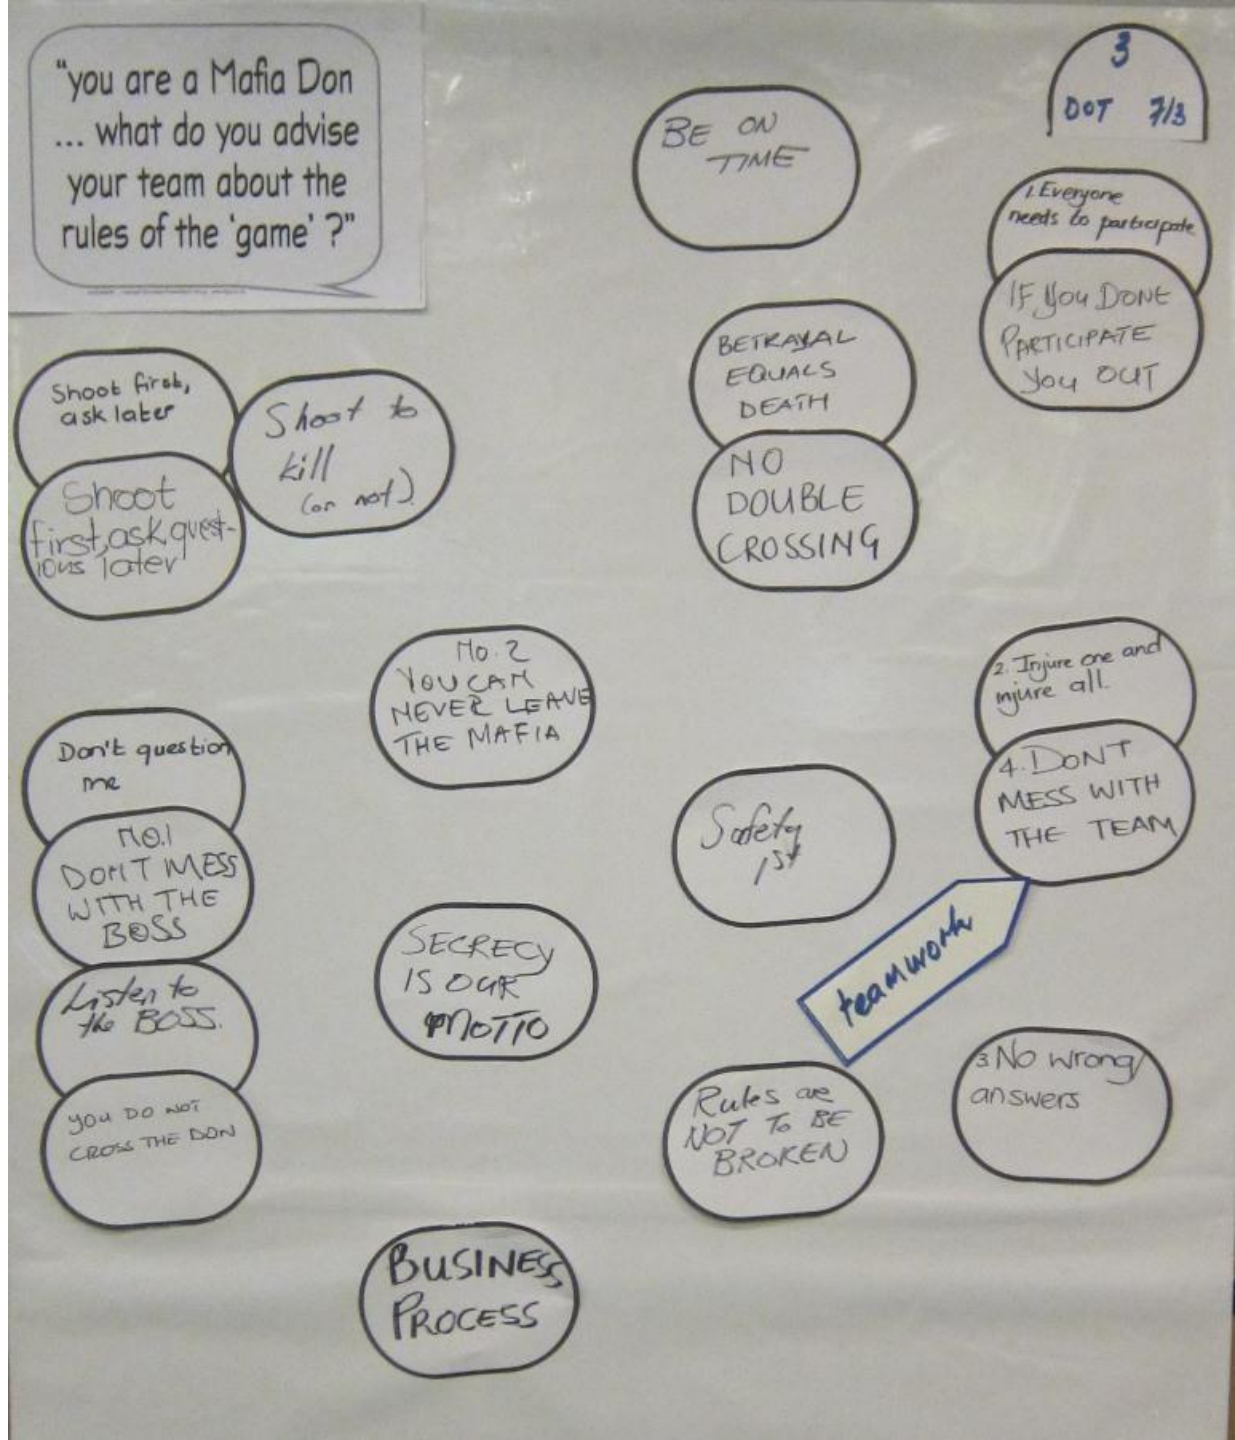 "you are a Mafia Don
... what do you advise
your team about the
rules of the 'game' ?"
3
DOT 7/3
BE ON
TIME
1. Everyone
needs to participate
IF YOU DONE
PARTICIPATE
YOU OUT
BETRAYAL
EQUALS
DEATH
NO
DOUBLE
CROSSING
Shoot first,
ask later
Shoot
first, ask quest-
ions later
Shoot to
kill
(or not).
No. 2
YOU CAN
NEVER LEAVE
THE MAFIA
2. Injure one and
injure all.
4. DON'T
MESS WITH
THE TEAM
Don't question
me
NO.1
DON'T MESS
WITH THE
BOSS
Listen to
the BOSS.
YOU DO NOT
CROSS THE DON
Safety
1st
SECRECY
IS OUR
MOTTO
teamwork
Rules are
NOT TO BE
BROKEN
3 No wrong
answers
BUSINESS
PROCESS